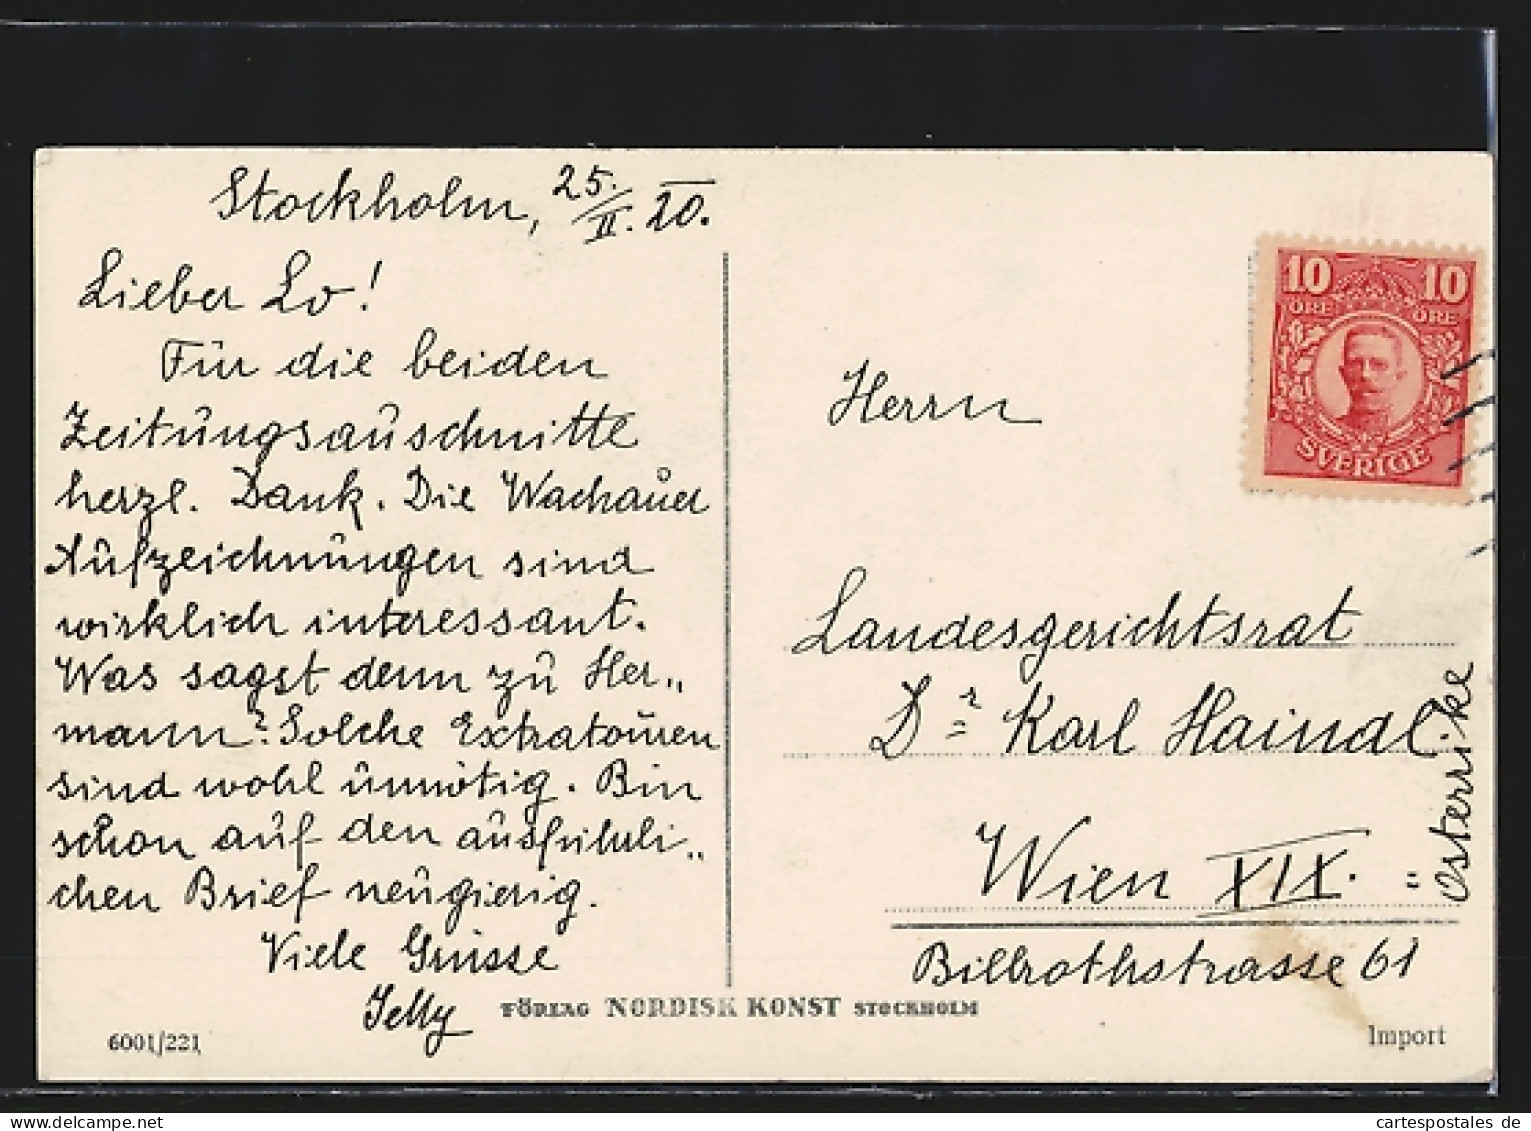 Stockholm, 25./II. 20.
Lieber Lo!
Für die beiden
Zeitungsauschnitte
herzl. Dank. Die Wachauer
Aufzeichnungen sind
wirklich interessant.
Was sagst denn zu Her„
mann? Solche Extratouren
sind wohl unnötig. Bin
schon auf den ausführli„
chen Brief neugierig.
Viele Grüsse
6001/221
10 10
ÖRE ÖRE
SVERIGE
Herrn
Landesgerichtsrat
Dr = Karl Haindl.
Wien XIX. =
Österrike
Billrothstrasse 61
FÖRLAG NORDISK KONST STOCKHOLM
Import
delcampe.net
cartespostales de